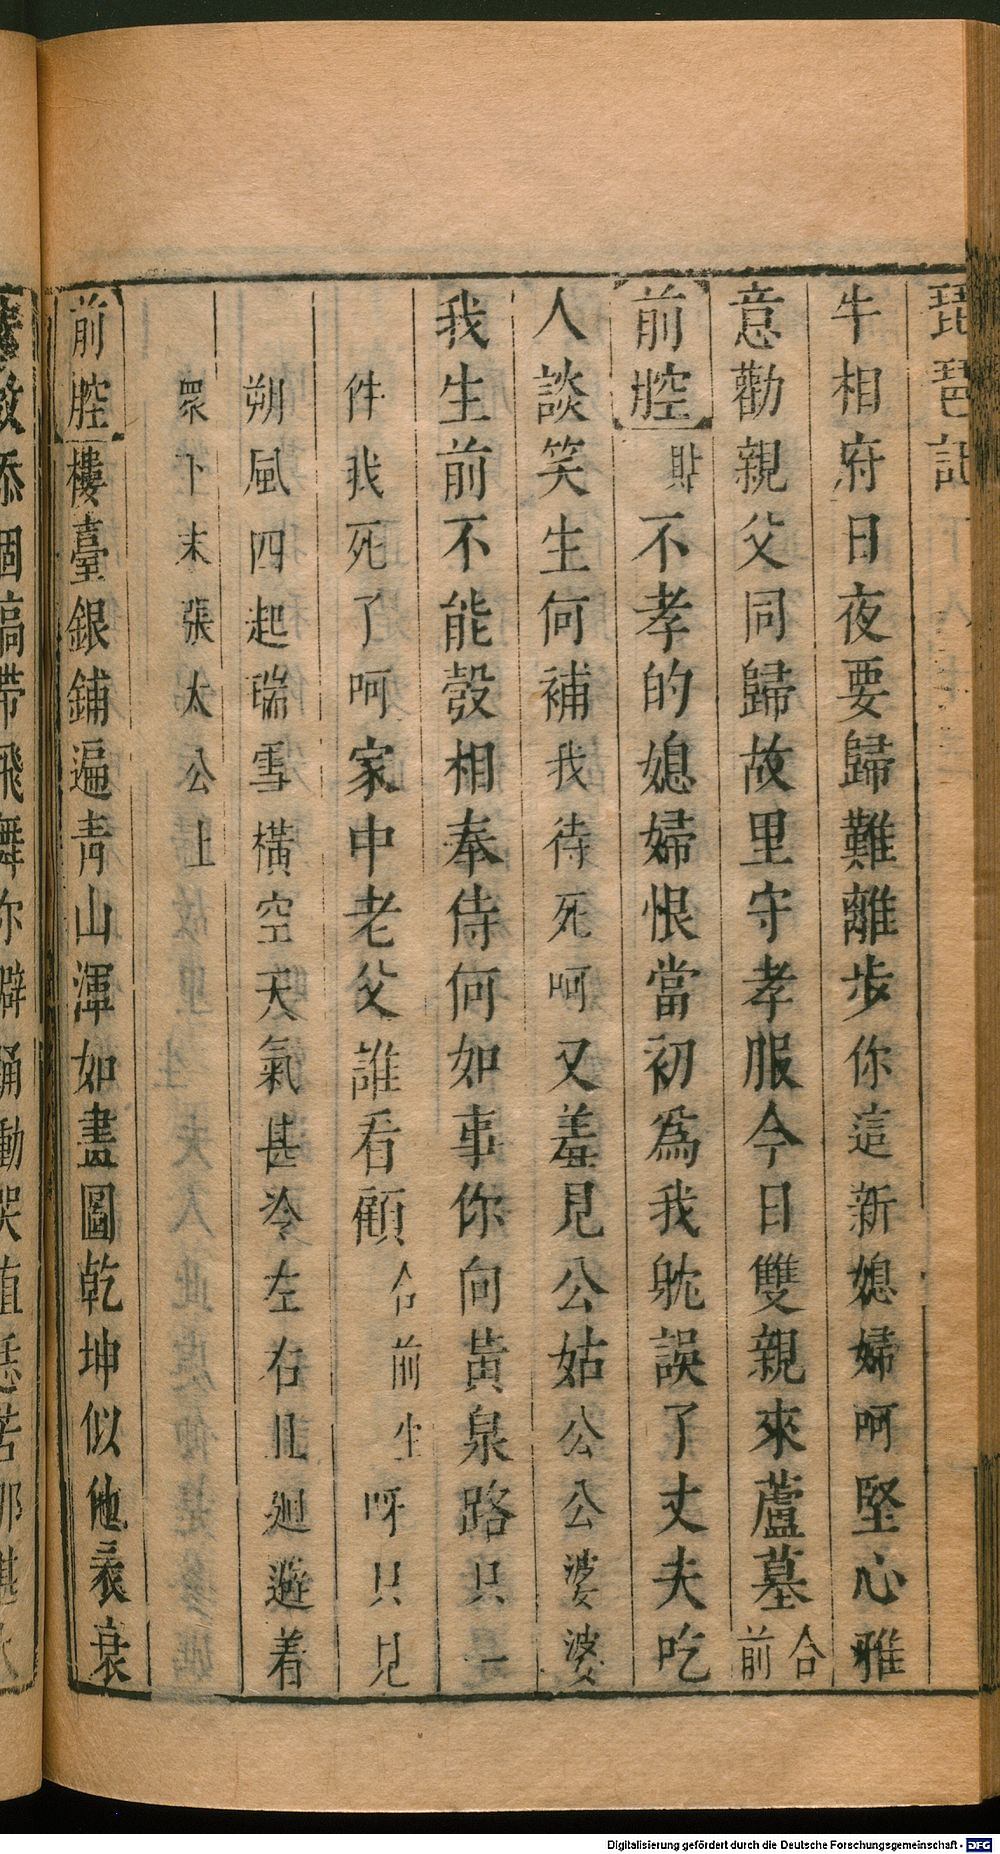 琵琶記
牛相府日夜要歸難離步你這新媳婦呵堅心雅
意勸親父同歸故里守孝服今日雙親來蘆墓合前
前腔貼不孝的媳婦恨當初爲我躭誤了丈夫吃
人談笑生何補我待死呵又羞見公姑公公婆婆
我生前不能彀相奉侍何如事你向黃泉路只一
件我死了呵家中老父誰看顧合前生呀只見
朔風四起瑞雪橫空天氣甚冷左右且廻避着
眾下末張太公上
前腔樓臺銀鋪遍青山渾如畫圖乾坤似他衰
添個縞帶飛舞你擗踊動哭直恁苦那堪
Digitalisierung gefördert durch die Deutsche Forschungsgemeinschaft - DFG